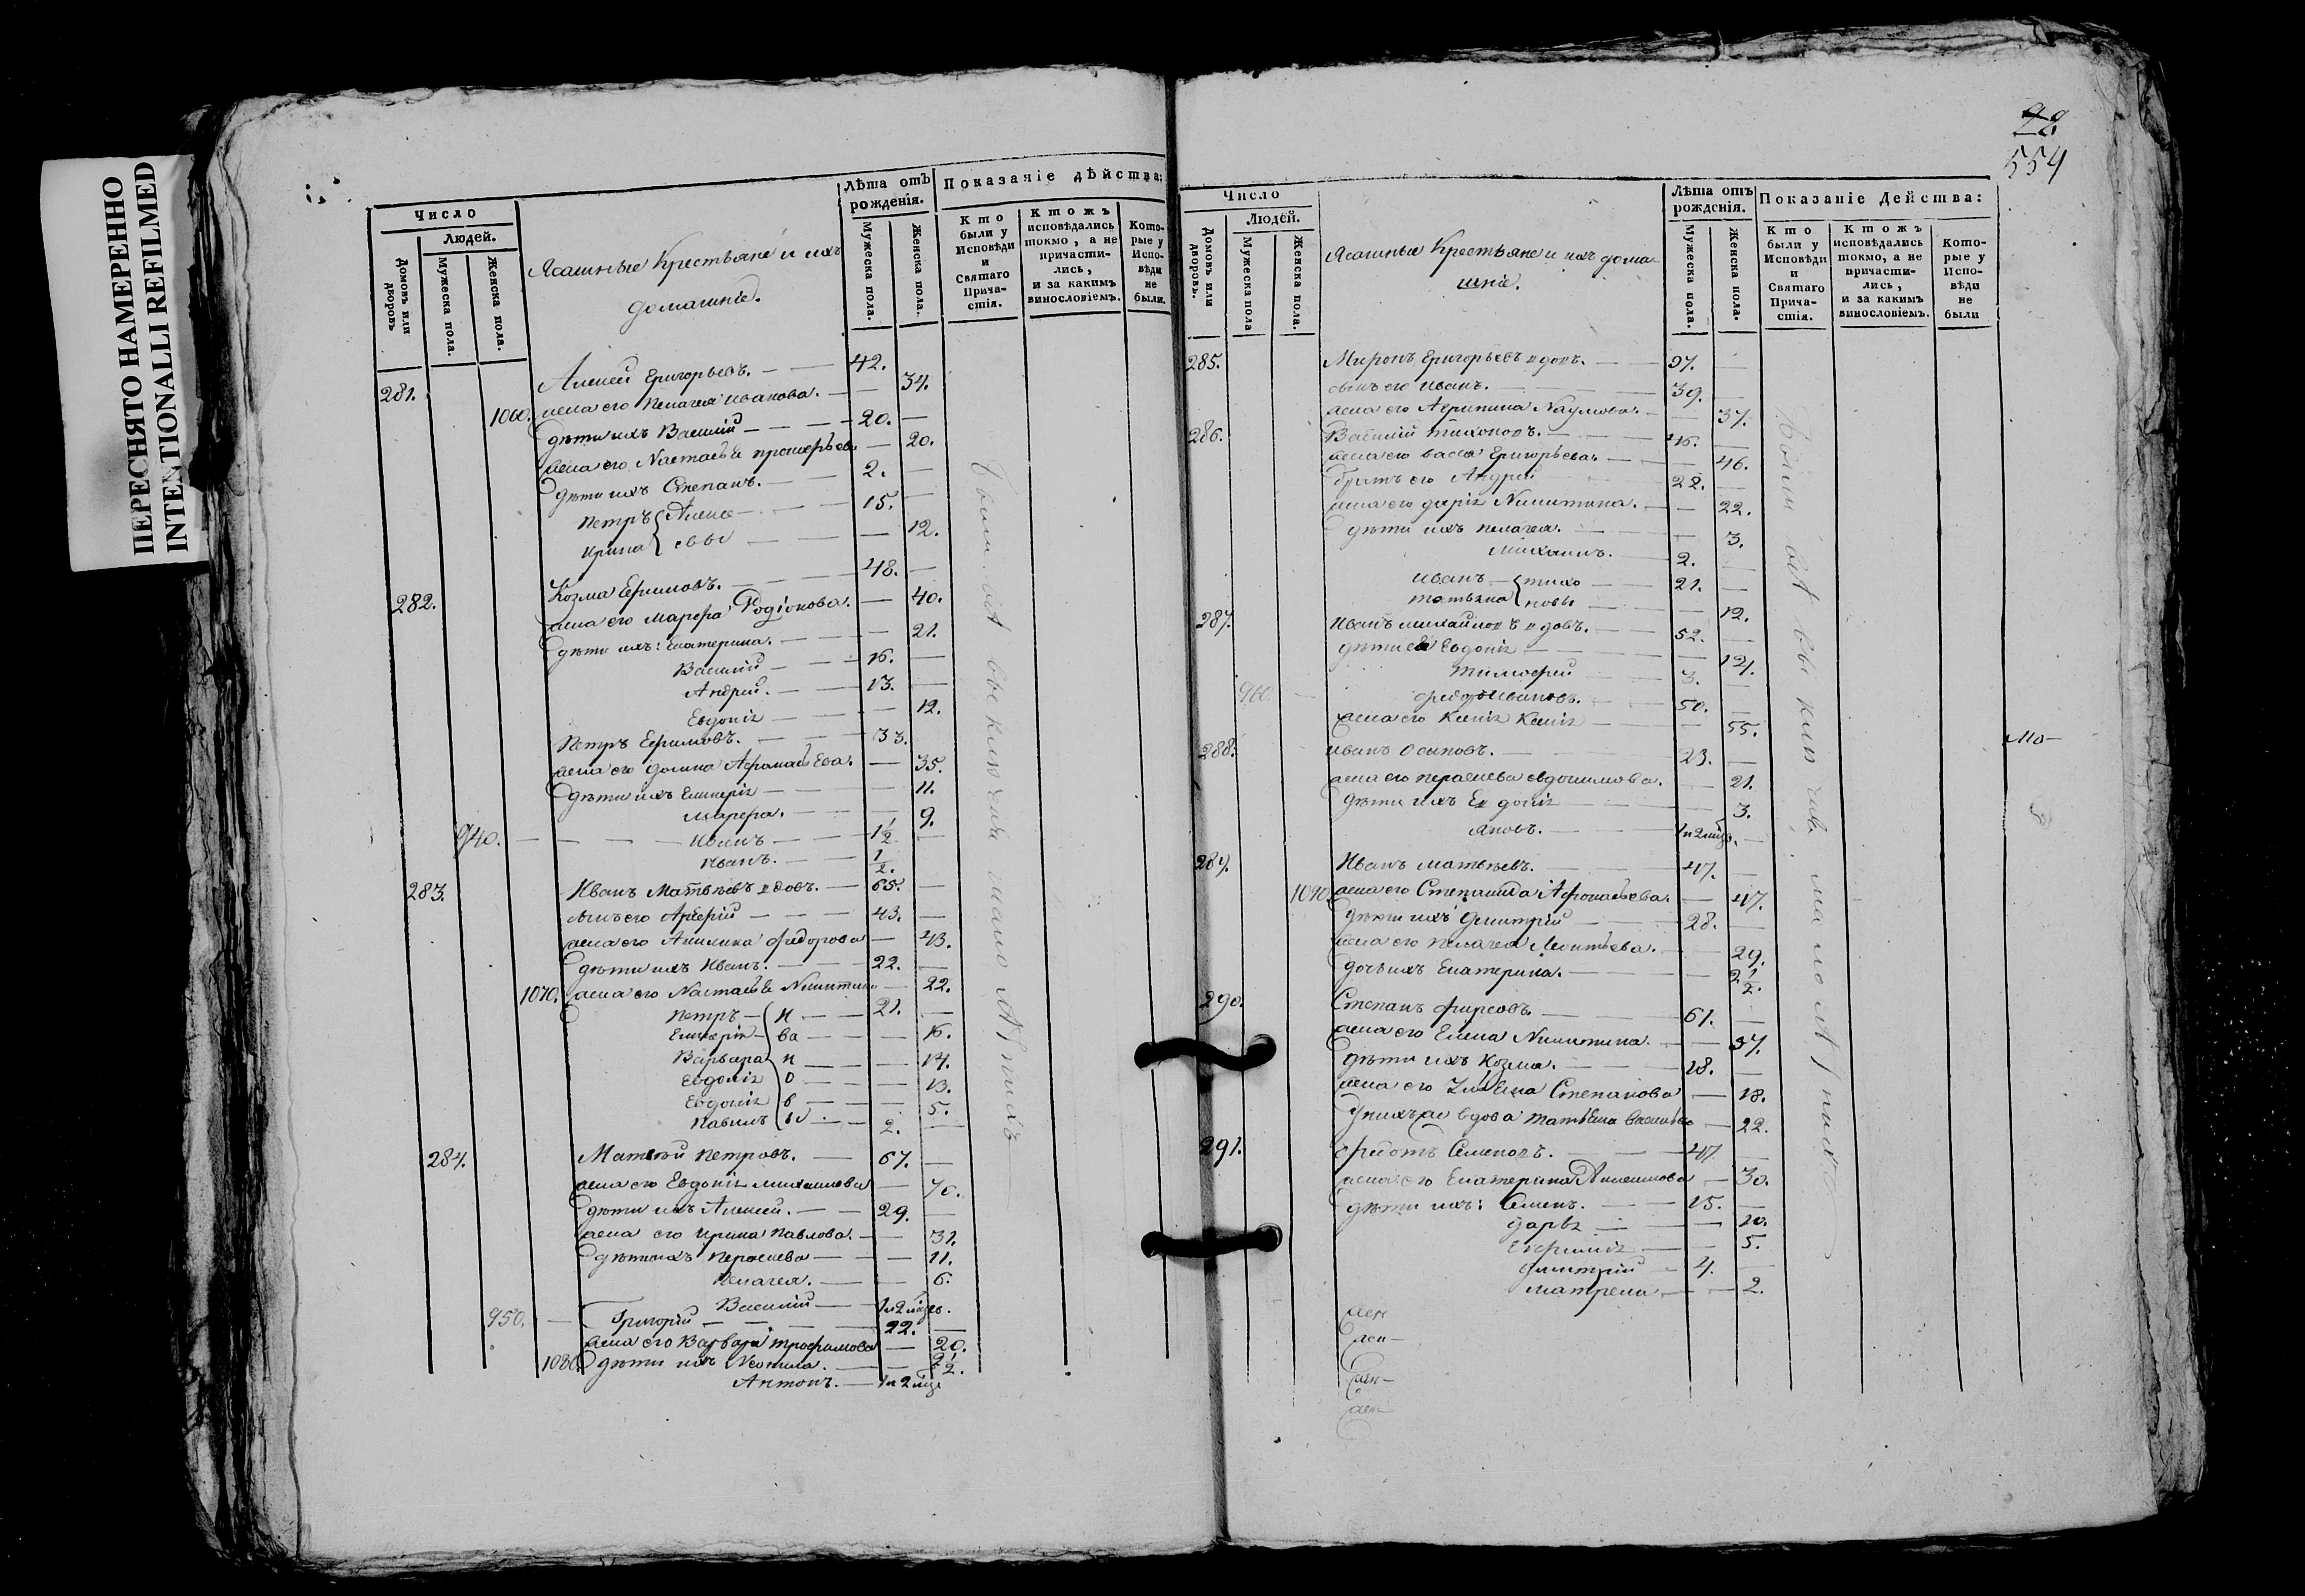 ПЕРЕСНЯТО НАМЕРЕННО
INTENTIONALLI REFILMED
Число
Людей.
Домовъ или дворовъ
Мужеска пола.
Женска пола.
Ясашные Крестьяне и ихъ
домашніе.
Лѣта отъ рожденія.
Мужеска пола.
Женска пола.
Показаніе дѣйства:
Кто были у Исповѣди и Святаго Прича-стія.
Ктожъ исповѣдались токмо, а не причасти-лись, и за какимъ винословіемъ.
Кото-рые у Испо-вѣди не были.
281. Алексей Григорьевъ. 42.
1060. жена его Пелагея Иванова. 34.
дѣти ихъ Василій 20.
жена его Настасья 20.
дѣти ихъ Степанъ. 2.
Петръ Алексе 15.
Ирина евы 12.
282. Козма Ефимовъ. 48.
жена его Марфа Родіонова. 40.
дѣти ихъ: Екатерина. 21.
Василій 16.
Андрей. 13.
Евдокія 12.
Петръ Ефимовъ. 33.
жена его Домна Афонасьева. 35.
дѣти ихъ Гликерія 11.
Марфа. 9.
940. Иванъ 1 1/2
Иванъ. 1/2.
283. Иванъ Матвѣевъ вдовъ. 65.
сынъ его 43.
жена его Акилина Федорова 43.
дѣти ихъ Иванъ. 22.
1070. жена его Настасья Никитина 22.
Петръ И 21.
Гликерія ва 16.
Варвара н 14.
Евдокія о 13.
Евдокія в 5.
Павелъ ы 2.
284. Матвѣй Петровъ. 67.
жена его Евдокія Михаилова 70.
дѣти ихъ Алексей. 29.
жена его Ирина Павлова. 31.
дѣти ихъ Парасковья 11.
Пелагея. 6.
Василій
950. Григорій 22.
жена его Варвара Трофимова 20.
1080. дѣти ихъ Неонила. 2 1/2.
Антонъ.
554
Число
Людей.
Домовъ или дворовъ.
Мужеска пола
Женска пола.
Ясашные Крестьяне и ихъ дома-
шніе.
Лѣта отъ рожденія.
Мужеска пола.
Женска пола.
Показаніе Действа:
Кто были у Исповѣди и Святаго Прича-стія.
Ктожъ исповѣдались токмо, а не причасти-лись, и за какимъ винословіемъ.
Кото-рые у Испо-вѣди не были
285. Миронъ Григорьевъ вдовъ. 97.
сынъ его Иванъ. 39.
жена его Агрипина Наумова. 37.
286. Василій Тихоновъ. 46.
жена его Васса Григорьева. 46.
братъ его Андрей 22.
жена его Дарія Никитина. 22.
дѣти ихъ Пелагея. 3.
Михаилъ. 2.
Иванъ тихо 21.
Татьяна новы 12.
287. Иванъ Михайловъ вдовъ. 52.
дѣти его Евдокія 12.
Тимофей 3.
960. Федоръ Ивановъ. 50.
жена его Ксенія 55.
288. Иванъ Осиповъ. 23.
жена его Парасковья Евдокимова. 21.
дѣти ихъ Евдокія 3.
Яковъ.
289. Иванъ Матвѣевъ. 47.
1090. жена его Степанида Афонасьева. 47.
дѣти ихъ Дмитрій 28.
жена его Пелагея Леонтьева. 29.
дочь ихъ Екатерина. 2 1/2.
290. Степанъ Фирсовъ. 61.
жена его Елена Никитина. 57.
дѣти ихъ Козма. 18.
жена его Ульяна Степанова 18.
У нихъ же вдова Татьяна Васильева 22.
291. Семеновъ. 47
жена его Екатерина 30.
дѣти ихъ: Семенъ. 15.
Дарья 10.
Евфимія 5.
Дмитрій 4.
Матрена 2.